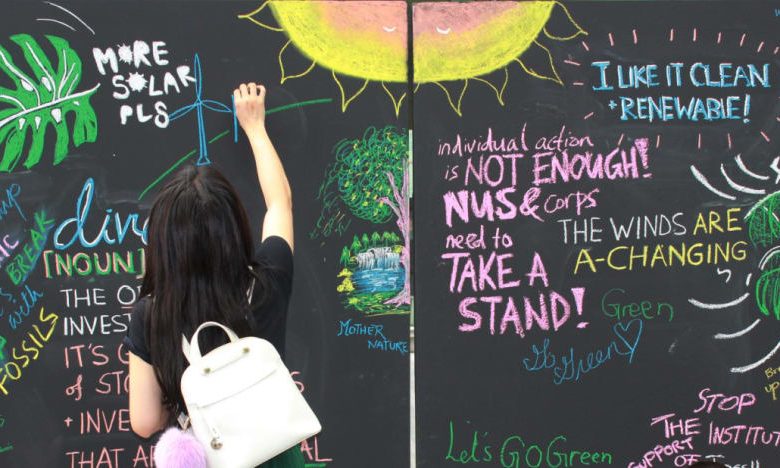 MORE
SOLAR
PLS
I LIKE IT CLEAN
+ RENEWABLE!
individual action
is NOT ENOUGH!
NUS & corps
need to
TAKE A
STAND!
THE WINDS ARE
A-CHANGING
Green
Go Green
[NOUN]
THE
INVEST
IT'S
of
+ INVE
THAT
BREAK
with
FOSSILS
MOTHER
NATURE
Let's Go Green
STOP
THE INSTITUT
SUPPORT
OF